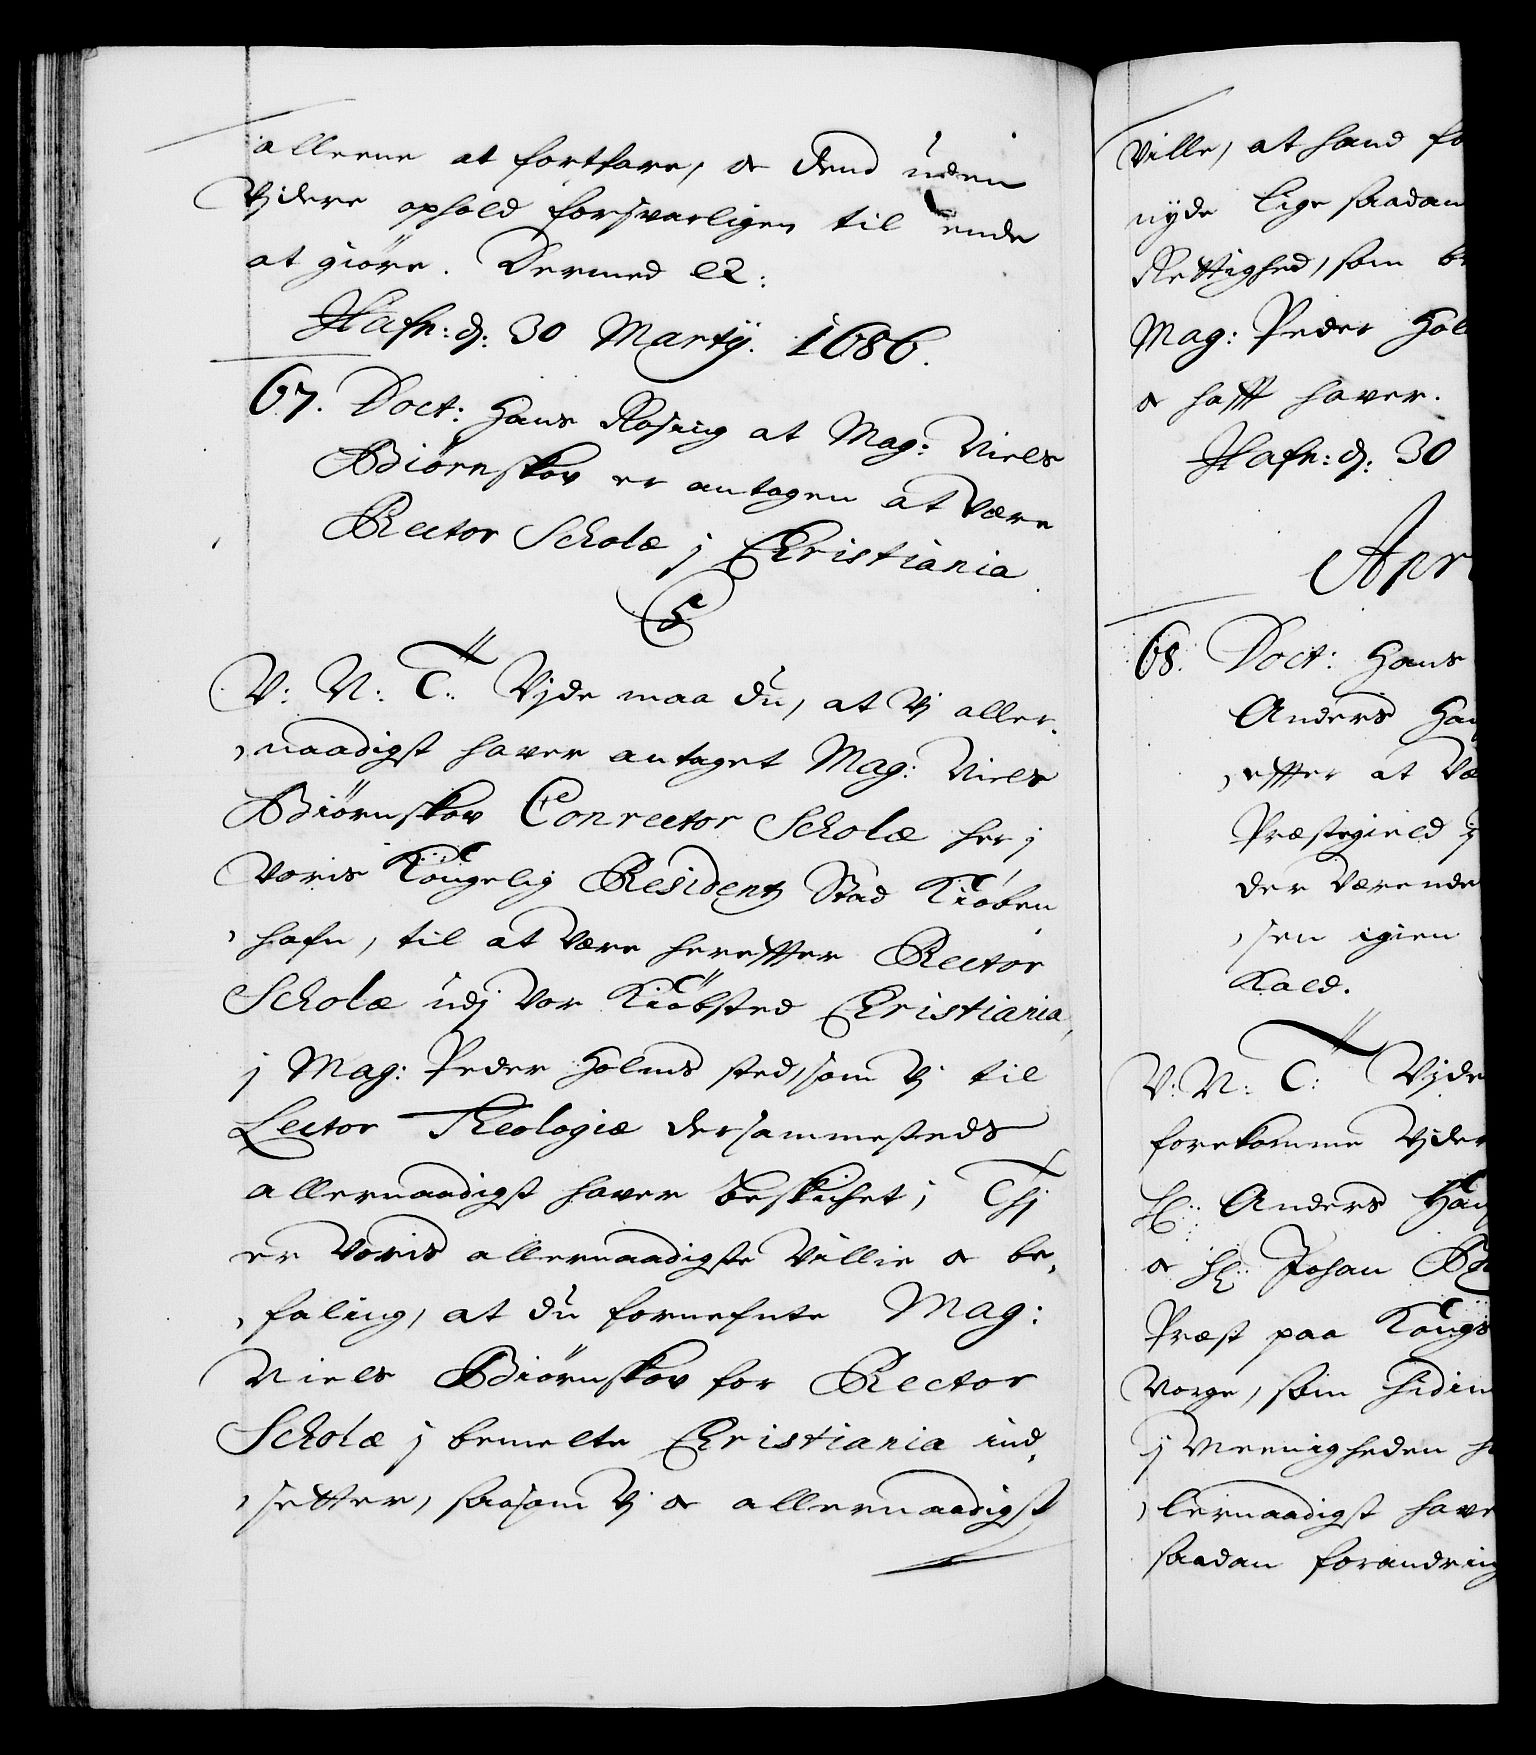 alleene at fortfare, oc dend uden
Videre ophold forsvarligen til ende
at giöre. Dermed etc:
Hafn: d: 30 Martij. 1686.
67. Doct: Hans Rosing at Mag: Niels
Biörnskov er antagen at være
Rector Scholæ j Christiania.
C5
V: N: T: Vide maa du, at Vj aller,
,naadigst haver antaget Mag: Niels
Biörnskov Conrector Scholæ her j
Voris Kongelig Residentz Stad Kiöben
,hafn, til at være hereffter Rector
Scholæ udj Vor Kiöbsted Christiania,
j Mag: Peder Holms sted, som Vj til
Lector Theologiæ dersammesteds
allernaadigst haver beskichet; Thj
er Voris allernaadigste Villie oc be,
,faling, at du fornefnte Mag:
Niels Biörnskov for Rector
Scholæ j bemelte Christiania ind,
,setter, saasom Vj oc allernaadigst
Ville, at hand fo
nyde lige saadan
Rettighed, som be
Mag: Peder Hol
oc hafft haver.
Hafn: d: 30
Apri
68. Doct: Hans
Anders Han
,effter at Væ
Præstegield j
der Værende
,sen igien
Kald.
V: N: T: Vide
forekomme Vider
Hr: Anders Han
oc Hr: Johan B
Præst paa Kongs
Norge, som hidin
j Meenigheden h
,lernaadigst have
saadan forandring